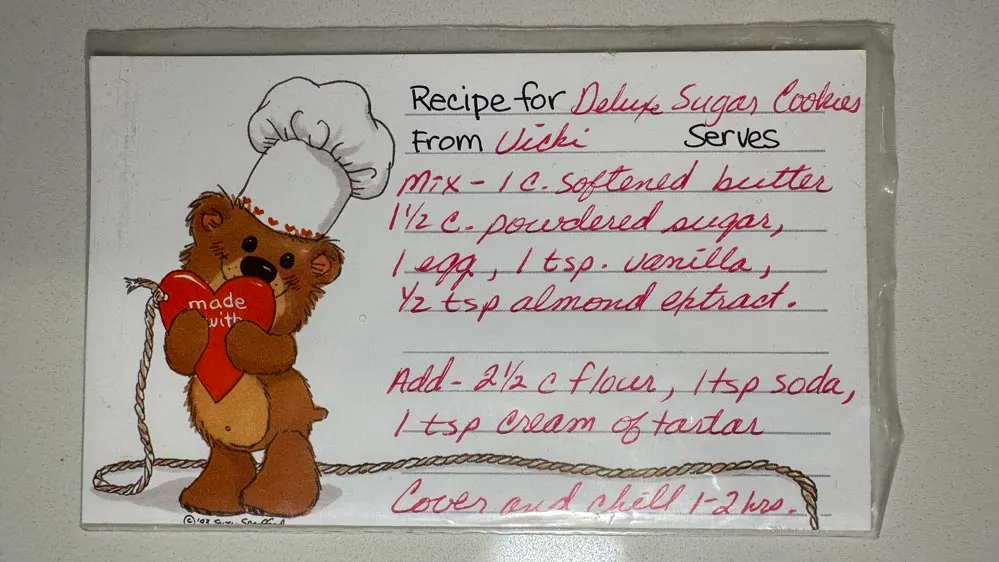 Recipe for Deluxe Sugar Cookies
From Vicki Serves
Mix - 1 c. softened butter
1½ c. powdered sugar,
1 egg, 1 tsp. vanilla,
½ tsp almond extract.
Add - 2½ c flour, 1 tsp soda,
1 tsp cream of tartar
Cover and chill 1-2 hrs.
made
with